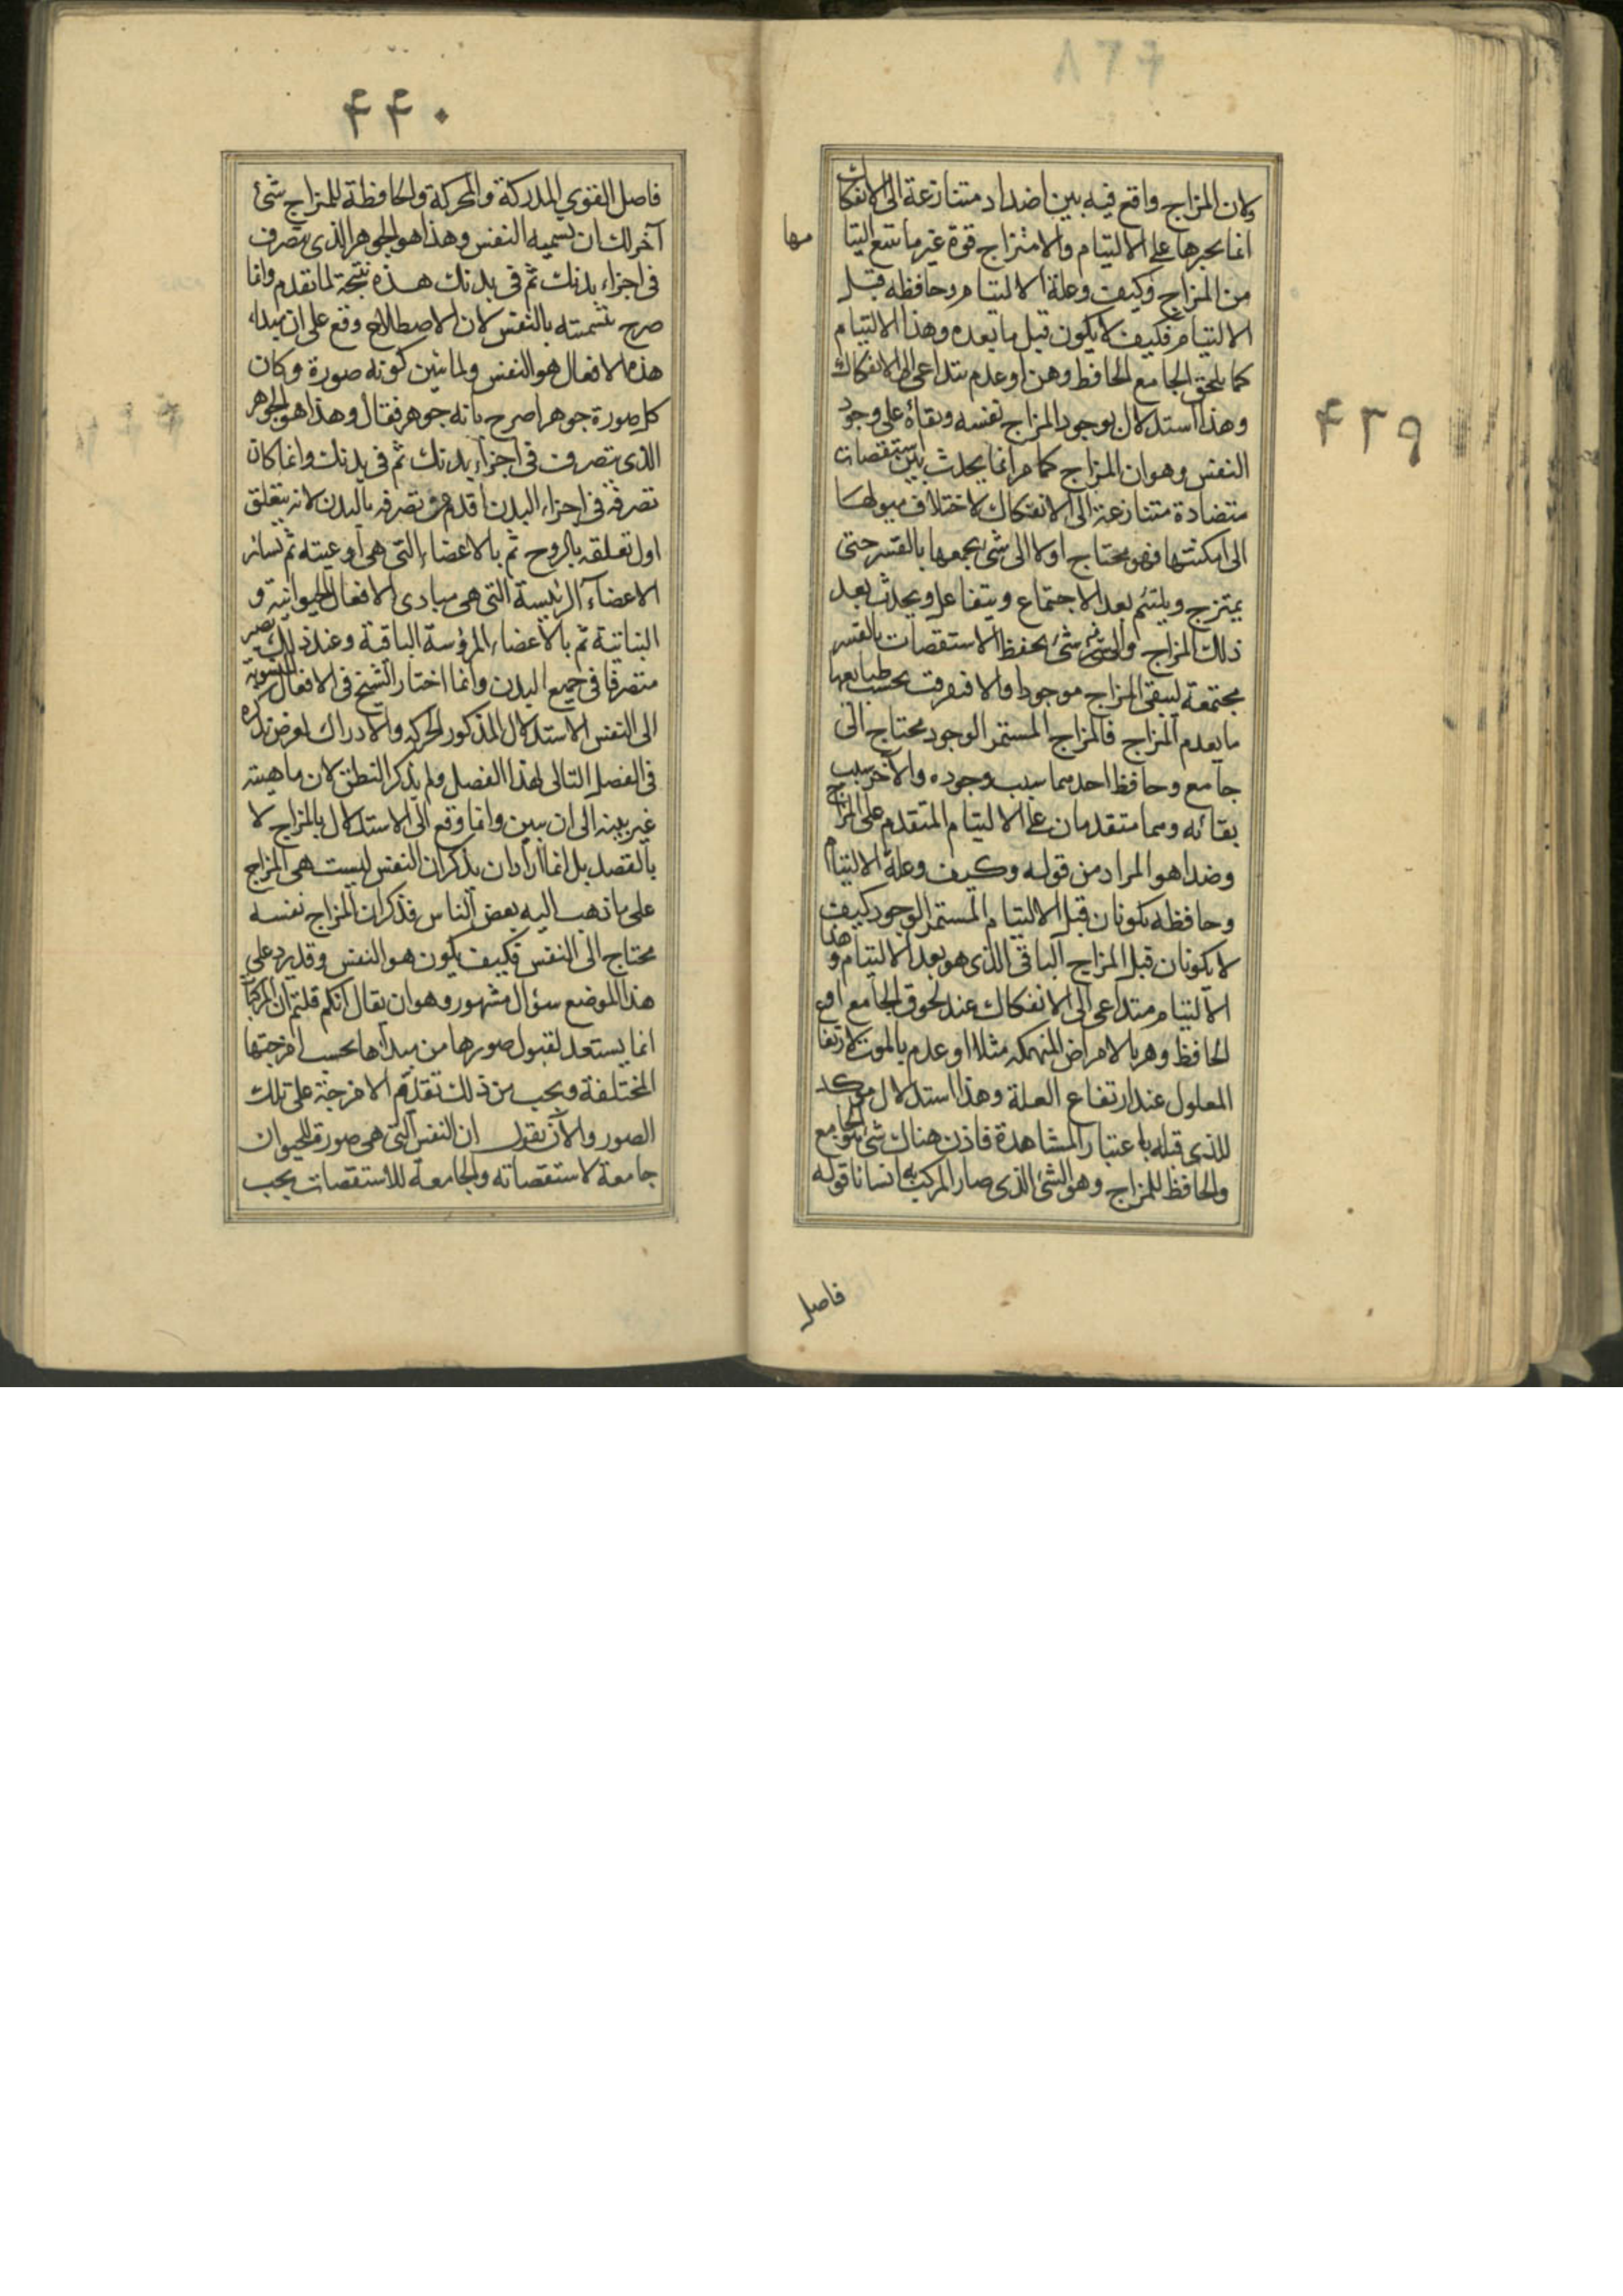 ٨٦٢
٤٣٩
ولان المزاج واقع فيه بين اضداد متنازعة الى الانفكاك
انما يجبرها على الالتيام والامتزاج قوة غير ما يتبع التيا
مها
من المزاج وكيف وعلة الالتيام وحافظه قبل
الالتيام فكيف لا يكون قبل ما بعده وهذا الالتيام
كما يلحق الجامع الحافظ وهن او عدم يتداعى الى الانفكاك
وهذا استدلال بوجود المزاج نفسه وبقائه على وجود
النفس وهو ان المزاج كما مر انما يحدث بين استقصات
متضادة متنازعة الى الانفكاك لاختلاف ميولها
الى امكنتها فهو محتاج اولا الى شئ يجمعها بالقسر حتى
يمتزج ويلتئم بعد الاجتماع ويتفاعل ويحدث بعد
ذلك المزاج والى شئ يحفظ الاستقصات بالقسر
مجتمعة ليبقى المزاج موجودا والا فتفرقت بحسب طبايعها
ما يعدم المزاج فالمزاج المستمر الوجود محتاج الى
جامع وحافظ احدهما سبب وجوده والآخر سبب
بقائه وهما متقدمان على الالتيام المتقدم على المزاج
وهذا هو المراد من قوله وكيف وعلة الالتيام
وحافظه يكونان قبل الالتيام المستمر الوجود كيف
لا يكونان قبل المزاج الباقى الذى هو بعد الالتيام وهذا
الالتيام متداعى الى الانفكاك عند لحوق الجامع او
الحافظ وهن بالامراض المنهكه مثلا او عدم بالموت لارتفا
المعلول عند ارتفاع العلة وهذا استدلال مؤكد
للذى قبله باعتبار المشاهدة فاذن هناك شئ هو الجامع
والحافظ للمزاج وهو الشئ الذى صار المركب به انسانا قوله
فاصل
٤٤٠
فاصل القوى المدركة والمحركة والحافظة للمزاج شئ
آخر لك ان تسميه النفس وهذا هو الجوهر الذى يتصرف
فى اجزاء بدنك ثم فى بدنك هذه نتيجة لما تقدم وانما
صرح بتسميته بالنفس لان الاصطلاح وقع على ان مبداء
هذه الافعال هو النفس ولما تبين كونه صورة وكان
كل صورة جوهرا صرح بانه جوهر فقال وهذا هو الجوهر
الذى يتصرف فى اجزاء بدنك ثم فى بدنك وانما كان
تصرفه فى اجزاء البدن اقدم من تصرفه بالبدن لانه يتعلق
اول تعلقه بالروح ثم بالاعضاء التى هى اوعيته ثم بسائر
الاعضاء الرئيسة التى هى مبادى الافعال الحيوانية و
النباتية ثم بالاعضاء المرؤسة الباقية وعند ذلك يصير
متصرفا فى جميع البدن وانما اختار الشيخ فى الافعال المنسوبة
الى النفس الاستدلال المذكور الحركة والادراك لغرض يذكره
فى الفصل التالى لهذا الفصل ولم يذكر النطق لان ماهيته
غير بينه الى ان يبين وانما وقع الى الاستدلال بالمزاج لا
بالقصد بل انما اراد ان يذكر ان النفس ليست هى المزاج
على ما ذهب اليه بعض الناس فذكر ان المزاج نفسه
محتاج الى النفس فكيف يكون هو النفس وقد يرد على
هذا الموضع سؤال مشهور وهو ان يقال انكم قلتم ان المركبات
انما يستعد لقبول صورها من مبدأها بحسب امزجتها
المختلفة ويجب من ذلك تقدم الامزجة على تلك
الصور والآن نقول ان النفس التى هى صورة للحيوان
جامعة لاستقصاته والجامعة للاستقصات يجب